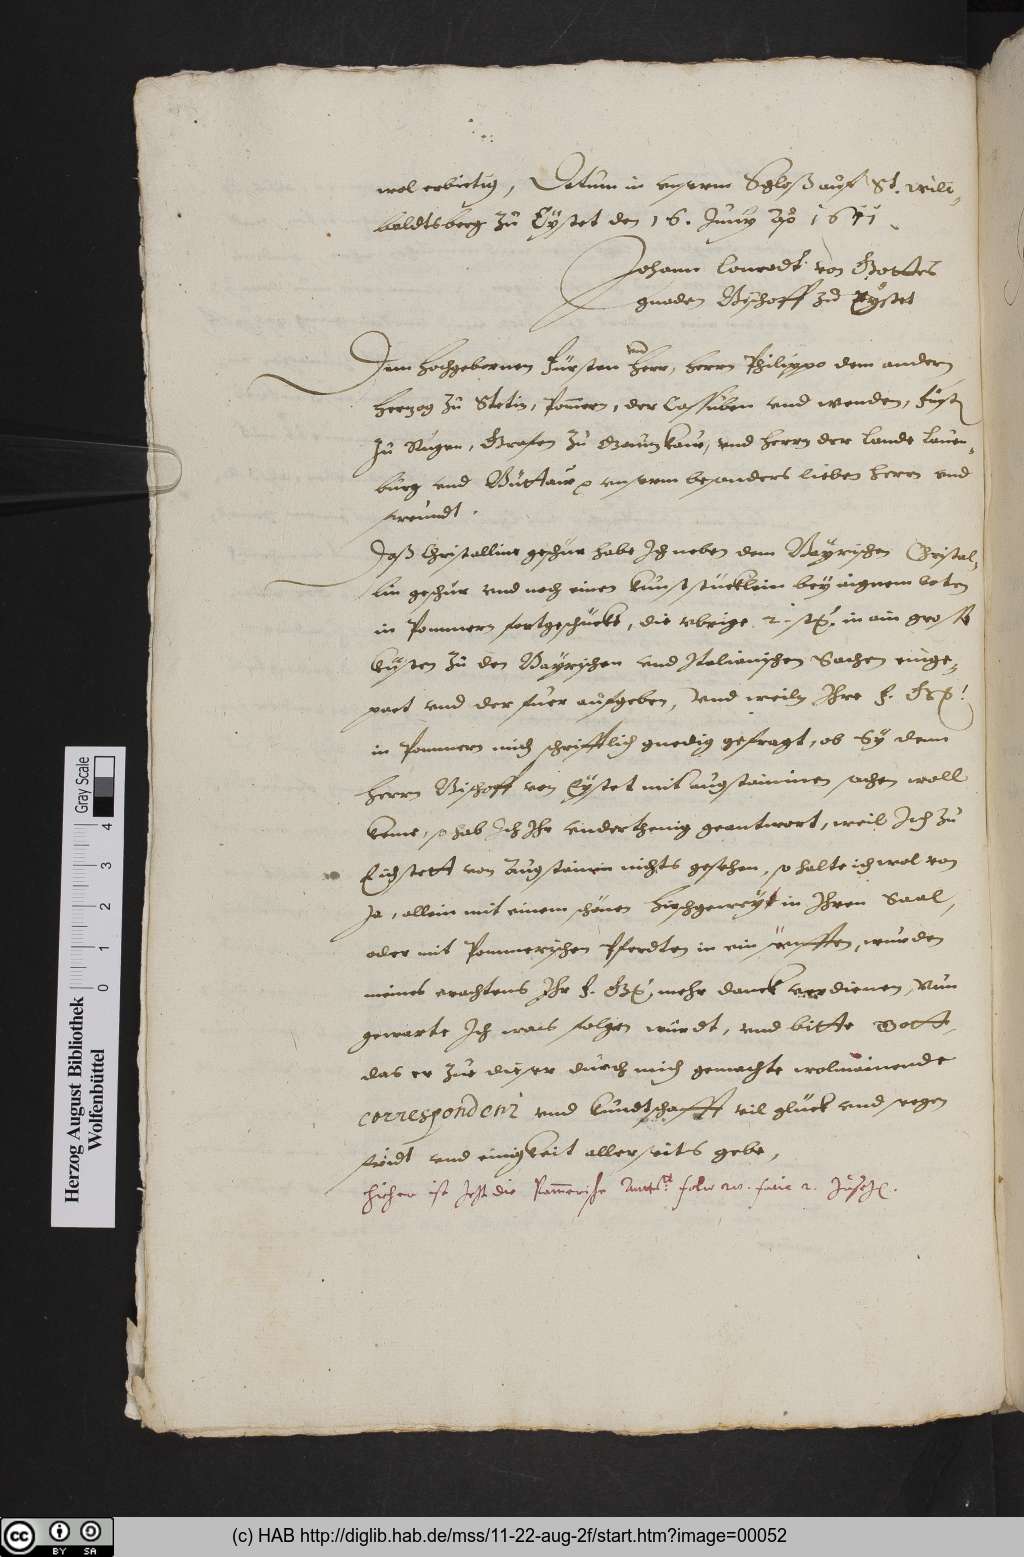 wol erbietig, Datum in unserm Schloß auf St. Wili-
baldtsberg zu Eystet den 16. Juny Aõ 1611.
Johann Conradt von Gottes
gnaden Bischoff zu Eystet
Dem Hochgebornen Fürsten und Herr, Herrn Philippo dem andern
Herzog zu Stetin, Pom̃ern, der Cassuben und Wenden, Fürst
zu Rügen, Grafen zu Gutzkaw, und Herrn der Lande Lauen-
burg und Büttaw unserm besonders lieben Herrn und
freundt.
Daß Christalline geschür habe Ich neben dem Bayrischen Christal-
lin geschür und noch einen kunststücklein bey aignem boten
in Pommern fortgeschückt, die ubrige 2. in ain grosse
kysten zu den Bayrischen und Italianischen Sachen einge-
pact und der fuer aufgeben, Und weiln Ihre f. Gn.
in Pommern mich schrifftlich gnedig gefragt, ob Sy dem
Herrn Bischoff von Eystet mit augstaininen sachen woll
keme, so hab Ich Ihr underthenig geantwort, weil Ich zu
Eichstett von Augstainin nichts gesehen, so halte ich wol von
Ja, allein mit einem schönen Hirschgewey in Ihren Saal,
oder mit Pommerischen Pferdten in ein wurden
meines erachtens Ihr f. Gn. mehr danck verdienen, Nun
gewarte Ich was folgen würdt, und bitte Gott,
das er zue diser durch mich gemachte wolmainende
correspondenz und kundtschafft vil glück und segen
fridt und einigkeit allerseits gebe,
hieher ist die Pom̃erische folio 20. 2.
Herzog August Bibliothek
Wolfenbüttel
0 1 2 3 4
Gray Scale
cc BY SA
(c) HAB http://diglib.hab.de/mss/11-22-aug-2f/start.htm?image=00052